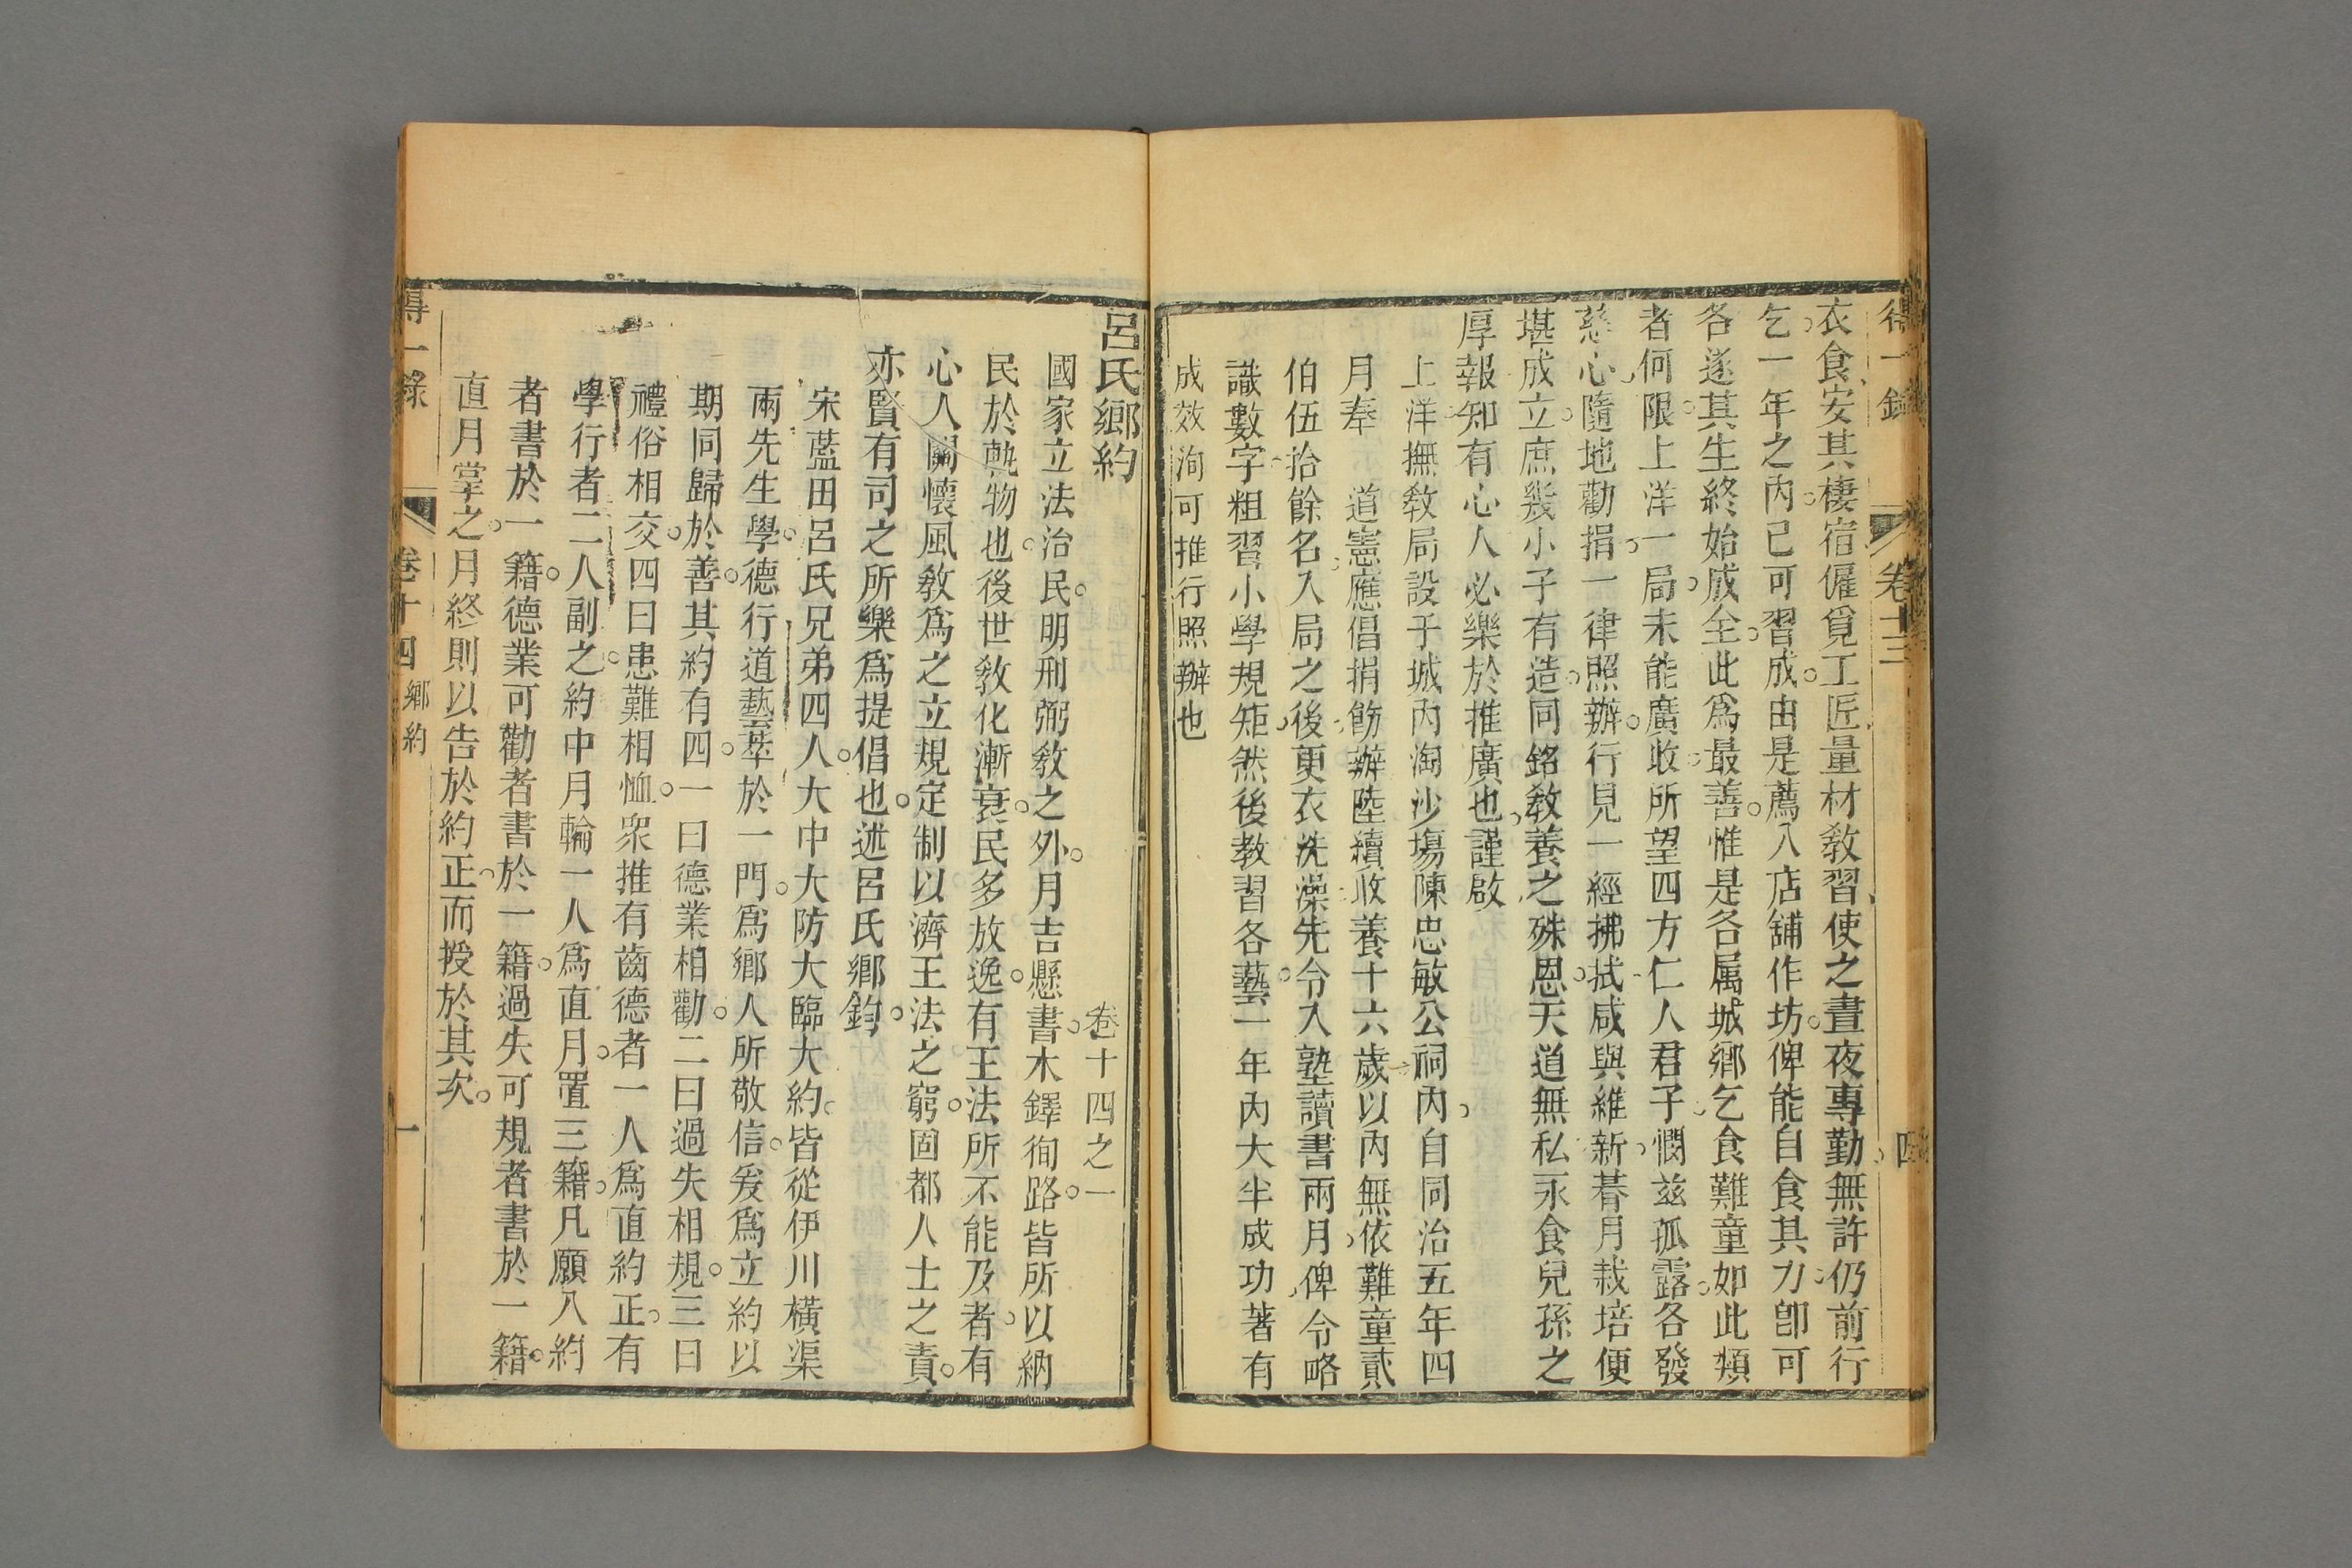 得一錄 卷十三 四
衣食安其棲宿僱覓工匠量材敎習使之晝夜專勤無許仍前行
乞一年之內已可習成由是薦入店舖作坊俾能自食其力卽可
各遂其生終始成全此爲最善惟是各属城鄉乞食難童如此類
者何限上洋一局未能廣收所望四方仁人君子憫兹孤露各發
慈心隨地勸捐一律照辦行見一經拂拭咸與維新朞月栽培便
堪成立庶幾小子有造同銘敎養之殊恩天道無私永食兒孫之
厚報知有心人必樂於推廣也謹啟
上洋撫敎局設于城內淘沙塲陳忠敏公祠內自同治五年四
月奉　道憲應倡捐飭辦陸續收養十六歲以內無依難童貳
伯伍拾餘名入局之後更衣洗澡先令入塾讀書兩月俾令略
識數字粗習小學規矩然後教習各藝一年內大半成功著有
成效洵可推行照辦也
呂氏鄉約　卷十四之一
國家立法治民明刑弼敎之外月吉懸書木鐸徇路皆所以納
民於軌物也後世敎化漸衰民多放逸有王法所不能及者有
心人關懷風敎爲之立規定制以濟王法之窮固都人士之責
亦賢有司之所樂爲提倡也述呂氏鄉鈞
宋藍田呂氏兄弟四人大中大防大臨大約皆從伊川橫渠
兩先生學德行道藝萃於一門爲鄉人所敬信爰爲立約以
期同歸於善其約有四一曰德業相勸二曰過失相規三曰
禮俗相交四曰患難相恤眾推有齒德者一人爲直約正有
學行者二人副之約中月輪一人爲直月置三籍凡願入約
者書於一籍德業可勸者書於一籍過失可規者書於一籍
直月掌之月終則以告於約正而授於其次
得一錄 卷十四 鄉約 一